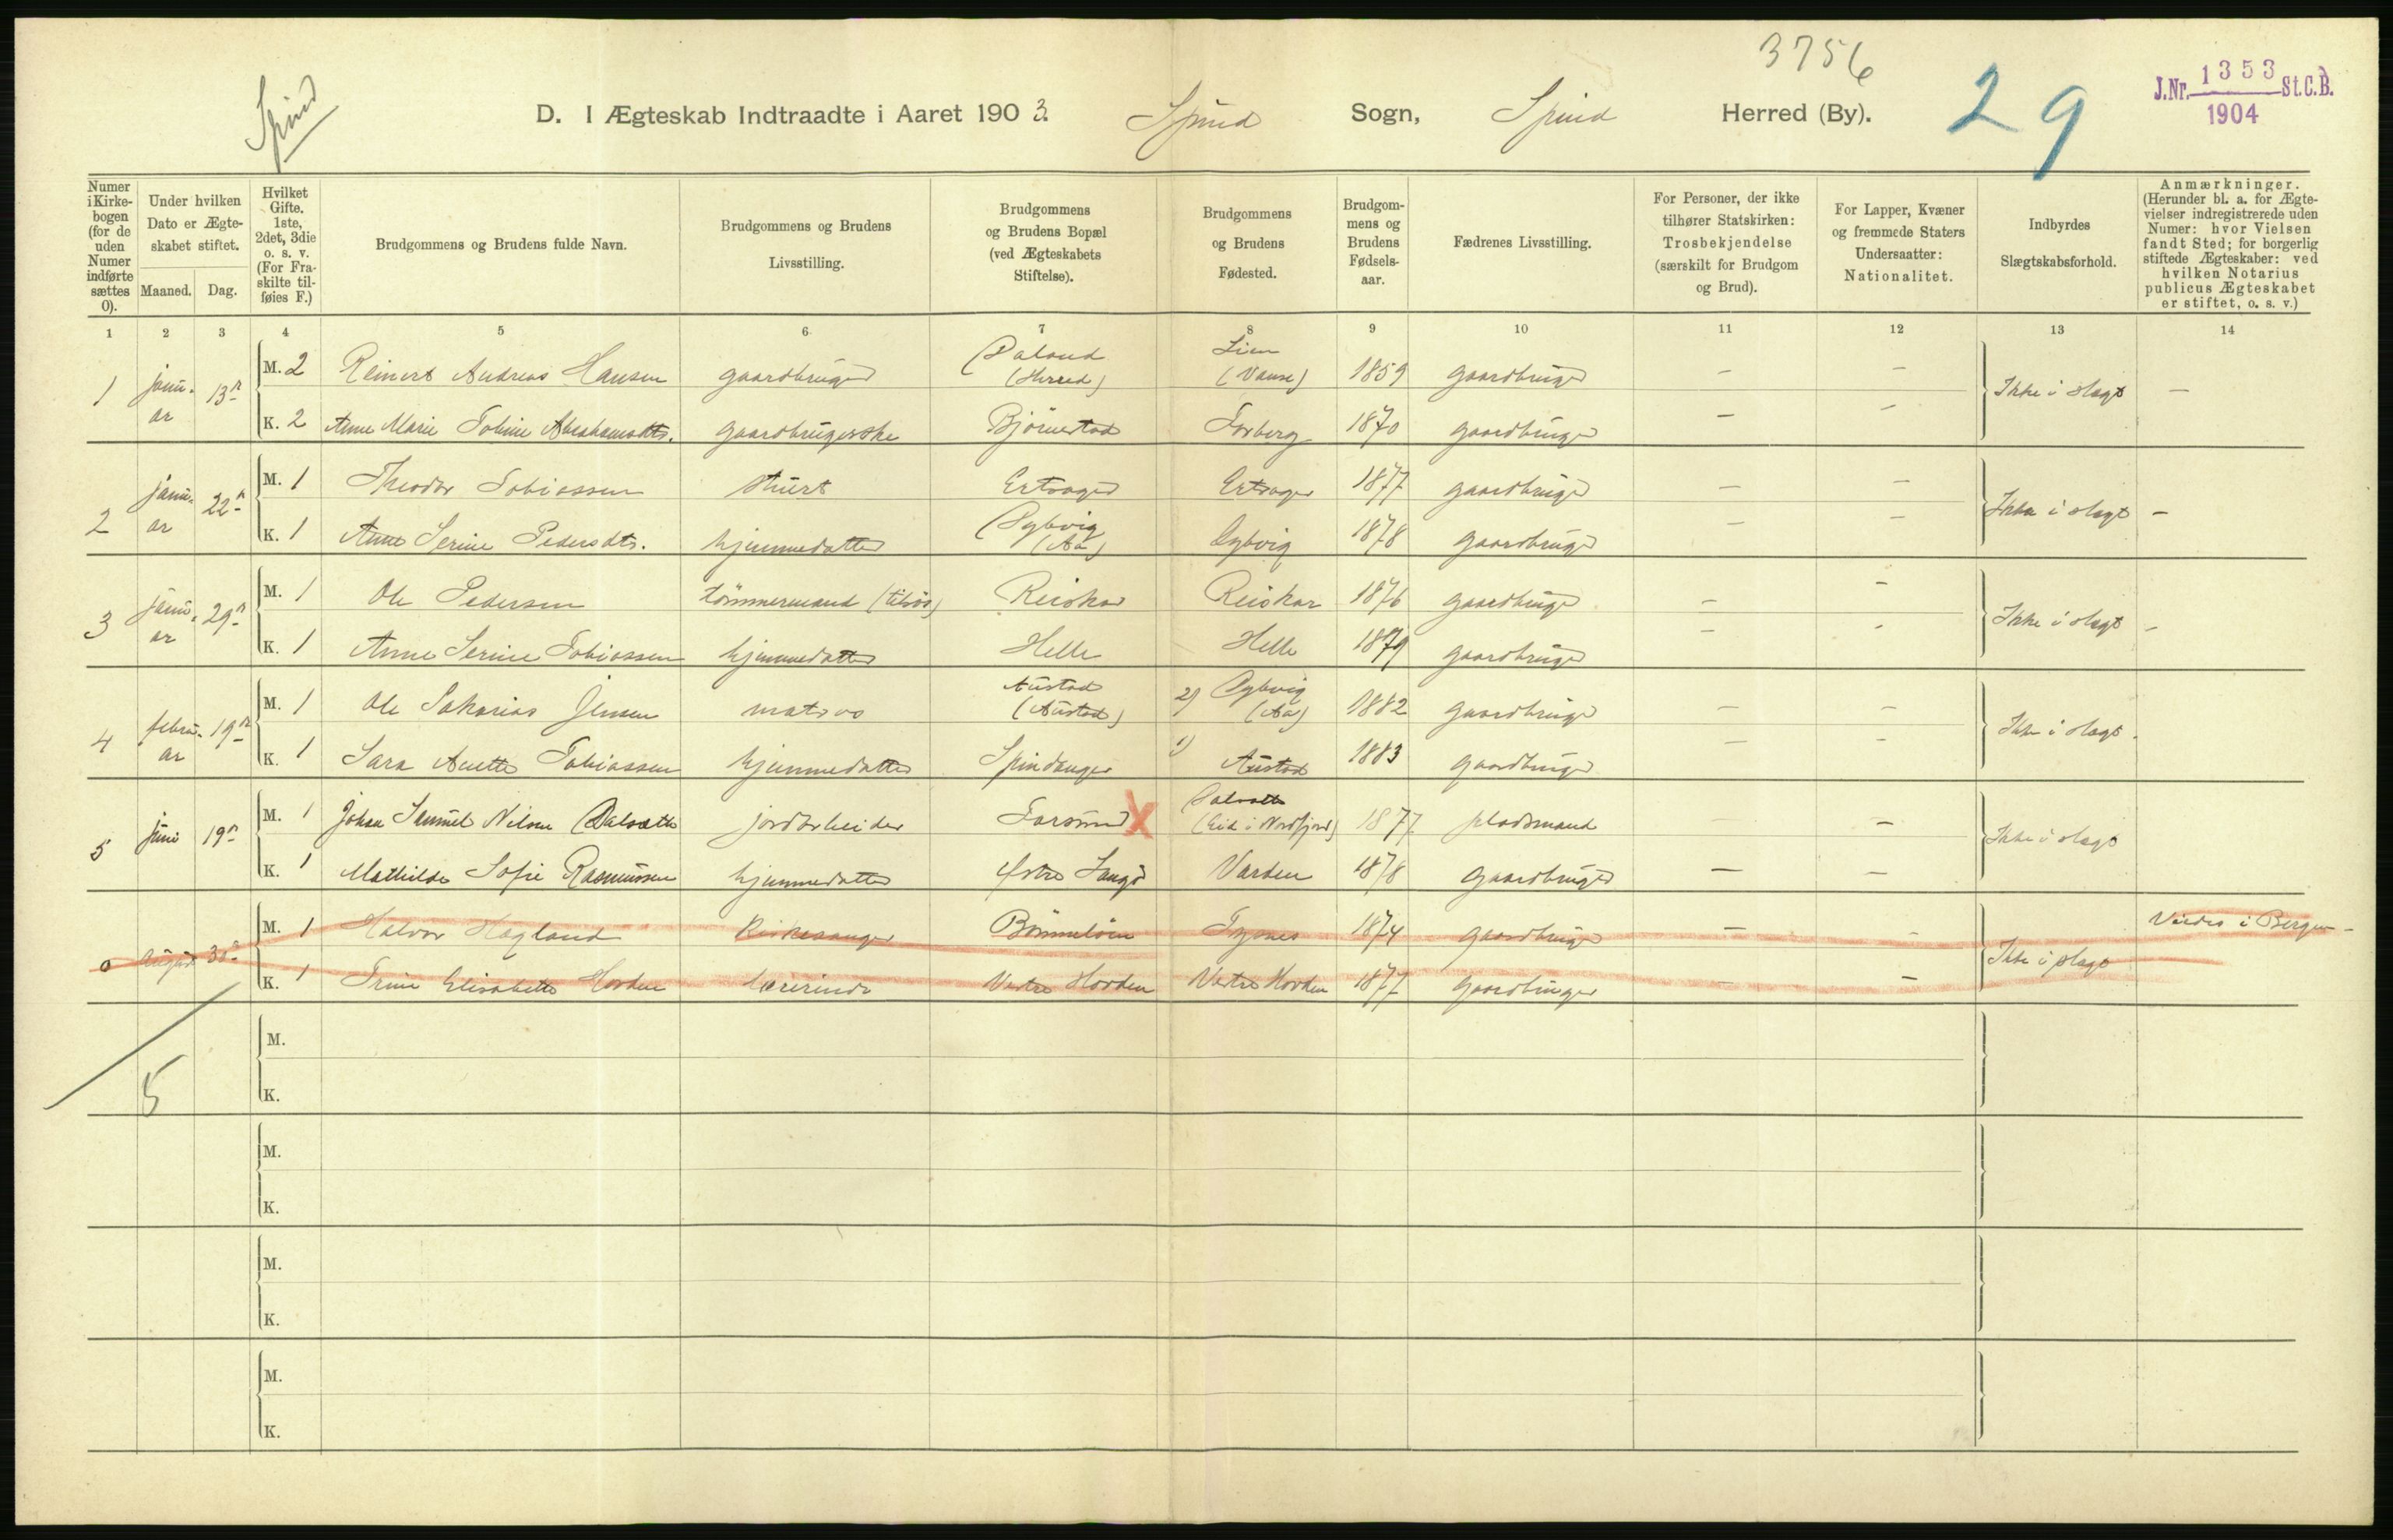 3756
Spind
D. I Ægteskab Indtraadte i Aaret 1903. Spind Sogn, Spind Herred (By).
29
J.Nr. 1353 St.C.B.
1904
Numer i Kirkebogen (for de uden Numer indførte sættes 0).
Under hvilken Dato er Ægteskabet stiftet.
Maaned. Dag.
Hvilket Gifte. 1ste, 2det, 3die o. s. v. (For Fraskilte tilføies F.)
Brudgommens og Brudens fulde Navn.
Brudgommens og Brudens Livsstilling.
Brudgommens og Brudens Bopæl (ved Ægteskabets Stiftelse).
Brudgommens og Brudens Fødested.
Brudgommens og Brudens Fødselsaar.
Fædrenes Livsstilling.
For Personer, der ikke tilhører Statskirken: Trosbekjendelse (særskilt for Brudgom og Brud).
For Lapper, Kvæner og fremmede Staters Undersaatter: Nationalitet.
Indbyrdes Slægtskabsforhold.
Anmærkninger. (Herunder bl. a. for Ægtevielser indregistrerede uden Numer: hvor Vielsen fandt Sted; for borgerlig stiftede Ægteskaber: ved hvilken Notarius publicus Ægteskabet er stiftet, o. s. v.)
1 2 3 4 5 6 7 8 9 10 11 12 13 14
1 januar 13de M. 2 Reinert Andreas Hansen gaardbruger Daland (Herred) Lien (Vanse) 1859 gaardbruger — — Ikke i slægt —
K. 2 Anne Marie Tobine Abrahamsdtr. gaardbrugerske Bjørnestad Torberg 1870 gaardbruger — —
2 januar 22de M. 1 Theodor Tobiassen Ertsager Ertsager 1877 gaardbruger — — Ikke i slægt —
K. 1 Anne Serine Pedersdtr. hjemmedatter Dybvig (Aa) Dybvig 1878 gaardbruger — —
3 januar 29de M. 1 Ole Pedersen tömmermand (tilsøs) Reiskar Reiskar 1876 gaardbruger — — Ikke i slægt —
K. 1 Anne Serine Tobiassen hjemmedatter Helle Helle 1879 gaardbruger — —
4 februar 19de M. 1 Ole Sakarias Jensen matros Austad (Austad) 2) Dybvig (Aa) 1882 gaardbruger — — Ikke i slægt.
K. 1 Sara Anette Tobiassen hjemmedatter Spindanger 1) Austad 1883 gaardbruger — —
5 juni 19de M. 1 Johan Samuel Nilsen Dalsæth jordarbeider Farsund X Dalsæth (Eid i Nordfjord) 1877 pladsmand — Ikke i slægt
K. 1 Mathilde Sofie Rasmussen hjemmedatter Østre Langø Varden 1878 gaardbruger — —
0 august M. 1 Halvor Hagland Kirkesanger Bömmeløen Tysnes 1874 gaardbruger — — Ikke i slægt Viedes i Bergen —
K. 1 Trine Elisabeth Hovden lærerinde Vestre Hovden Vestre Hovden 1877 gaardbruger — —
5
M.
K.
M.
K.
M.
K.
M.
K.